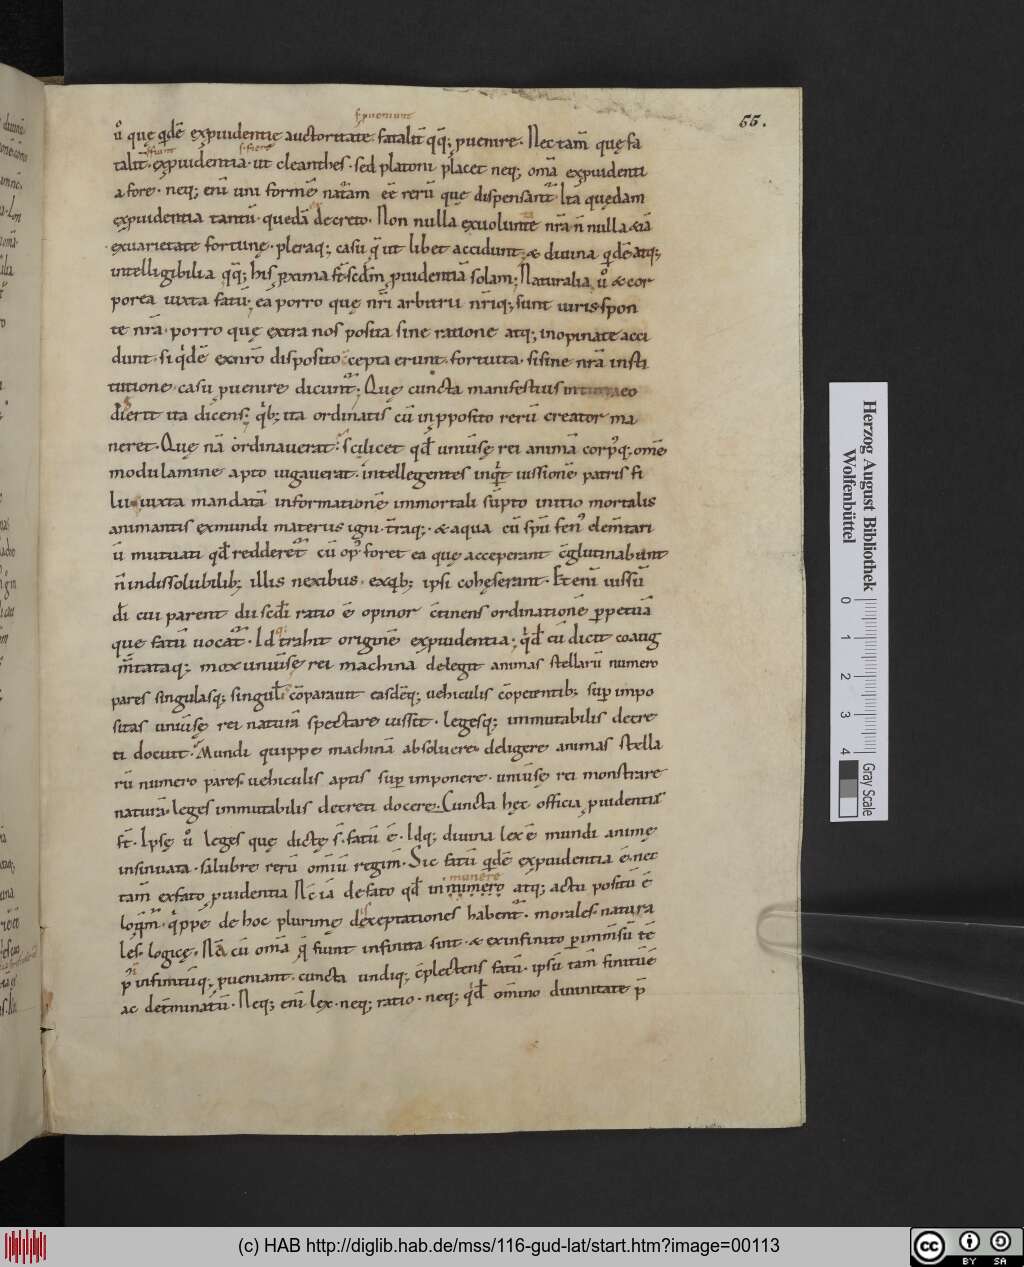 55.
s. proueniant
u͛ quę qdē ęx ꝓuidentię auctoritate fatalit̄ q̄q; ꝓuenire. Nec tam̄ quę fa
talit̄ ęx ꝓuidentia. ut cleanthes. sed platoni placet neq; om̄a ex ꝓuidenti
a fore. neq; enī uni formē natūam eē̄ rerū que dispensant̄. Ita quędam
ęx ꝓuidentia tantū. quedā decreto. Non nulla ex uolunte nr̄a n̄ nulla &iā
ex uarietate fortunę. pleraq; casu q̄ ut libet accidunt. & diuina qdē atq;
intelligibilia q̄q; his ꝓxima s̄t scdm̄ ꝓuidentiā solam; Naturalia u͛ & cor
porea iuxta fatū; ea porro quę nr̄i arbitrii nr̄iq; sunt iuris. spon
te nr̄a. porro quę extra nos posita sine ratione atq; inopinate acci
dunt. si qdē ex nr̄o disposito cepta erunt. fortuita. si sine nr̄a insti
tutione casu ꝓuenire dicunt̄; Que cuncta manifestius in eo
dierit ita dicens; qb; ita ordinatis cū in ꝓposito rerū creator ma
neret. Quę nā ordinauerat. scilicet qd̄ uniuersę rei animā corpq; om̄e
modulamine apto iugauerat. intellegentes inqt iussionē patris fi
lii iuxta mandatā informationē immortali sūpto initio mortalis
animantis ex mundi materiis igni. traq; & aqua cū spū fen͛ elem̄tari
ū mutuati qd̄ redderet̄ cū op͛ foret ea quę acceperant c̄glutinabant
n̄ indissolubilib; illis nexibus. ex qb; ipsi cohęserant. Et enī iussū
dī cui parent dii scdi ratio ē opinor c̄tinens ordinationē ꝑpetuā
que fatū uocat̄. Id trahit originē ex ꝓuidentia; qd̄ cū dicit coaug
m̄tataq; mox uniuersę rei machinā delegit animas stellarū numero
pares singulasq; singul̄ cōparauit easdēq; uehiculis cōpetentib; suꝑ impo
sitas uniuersę rei naturā spectare iussit. legesq; immutabilis decre
ti docuit. Mundi quippe machinā absoluere. deligere animas stella
rū numero pares. uehiculis aptis suꝑ imponere. uniuersę rei monstrare
naturā. leges immutabilis decreti docere. Cuncta hęc officia ꝓuidentię
s̄t. Ipsę u͛ leges quę dictę s̄. fatū ē. Idq; diuina lex ē mundi animę
insinuata. salubre rerū omīū regim̄. Sic fatū qdē ęx ꝓuidentia ē. nec
munere
tam̄ ex fato ꝓuidentia Nc̄ iā de fato qd̄ in numero atq; actu positū ē
loqm̄. qppe de hoc plurimę dęceptationes habent̄. morales. natura
les. logicę. Nā cū om̄a q̄ fiunt infinita sint. & ex infinito ꝑ imm̄sū tē
p͛ infinitūq; ꝓueniant. cuncta undiq; c̄plectens fatū. ipsū tam̄ finitūē
ac det̄minatū. Neq; enī lex. neq; ratio. neq; qd̄ om̄ino diuinitate p̄
Herzog August Bibliothek
Wolfenbüttel
0 1 2 3 4
Gray Scale
(c) HAB http://diglib.hab.de/mss/116-gud-lat/start.htm?image=00113
cc BY SA